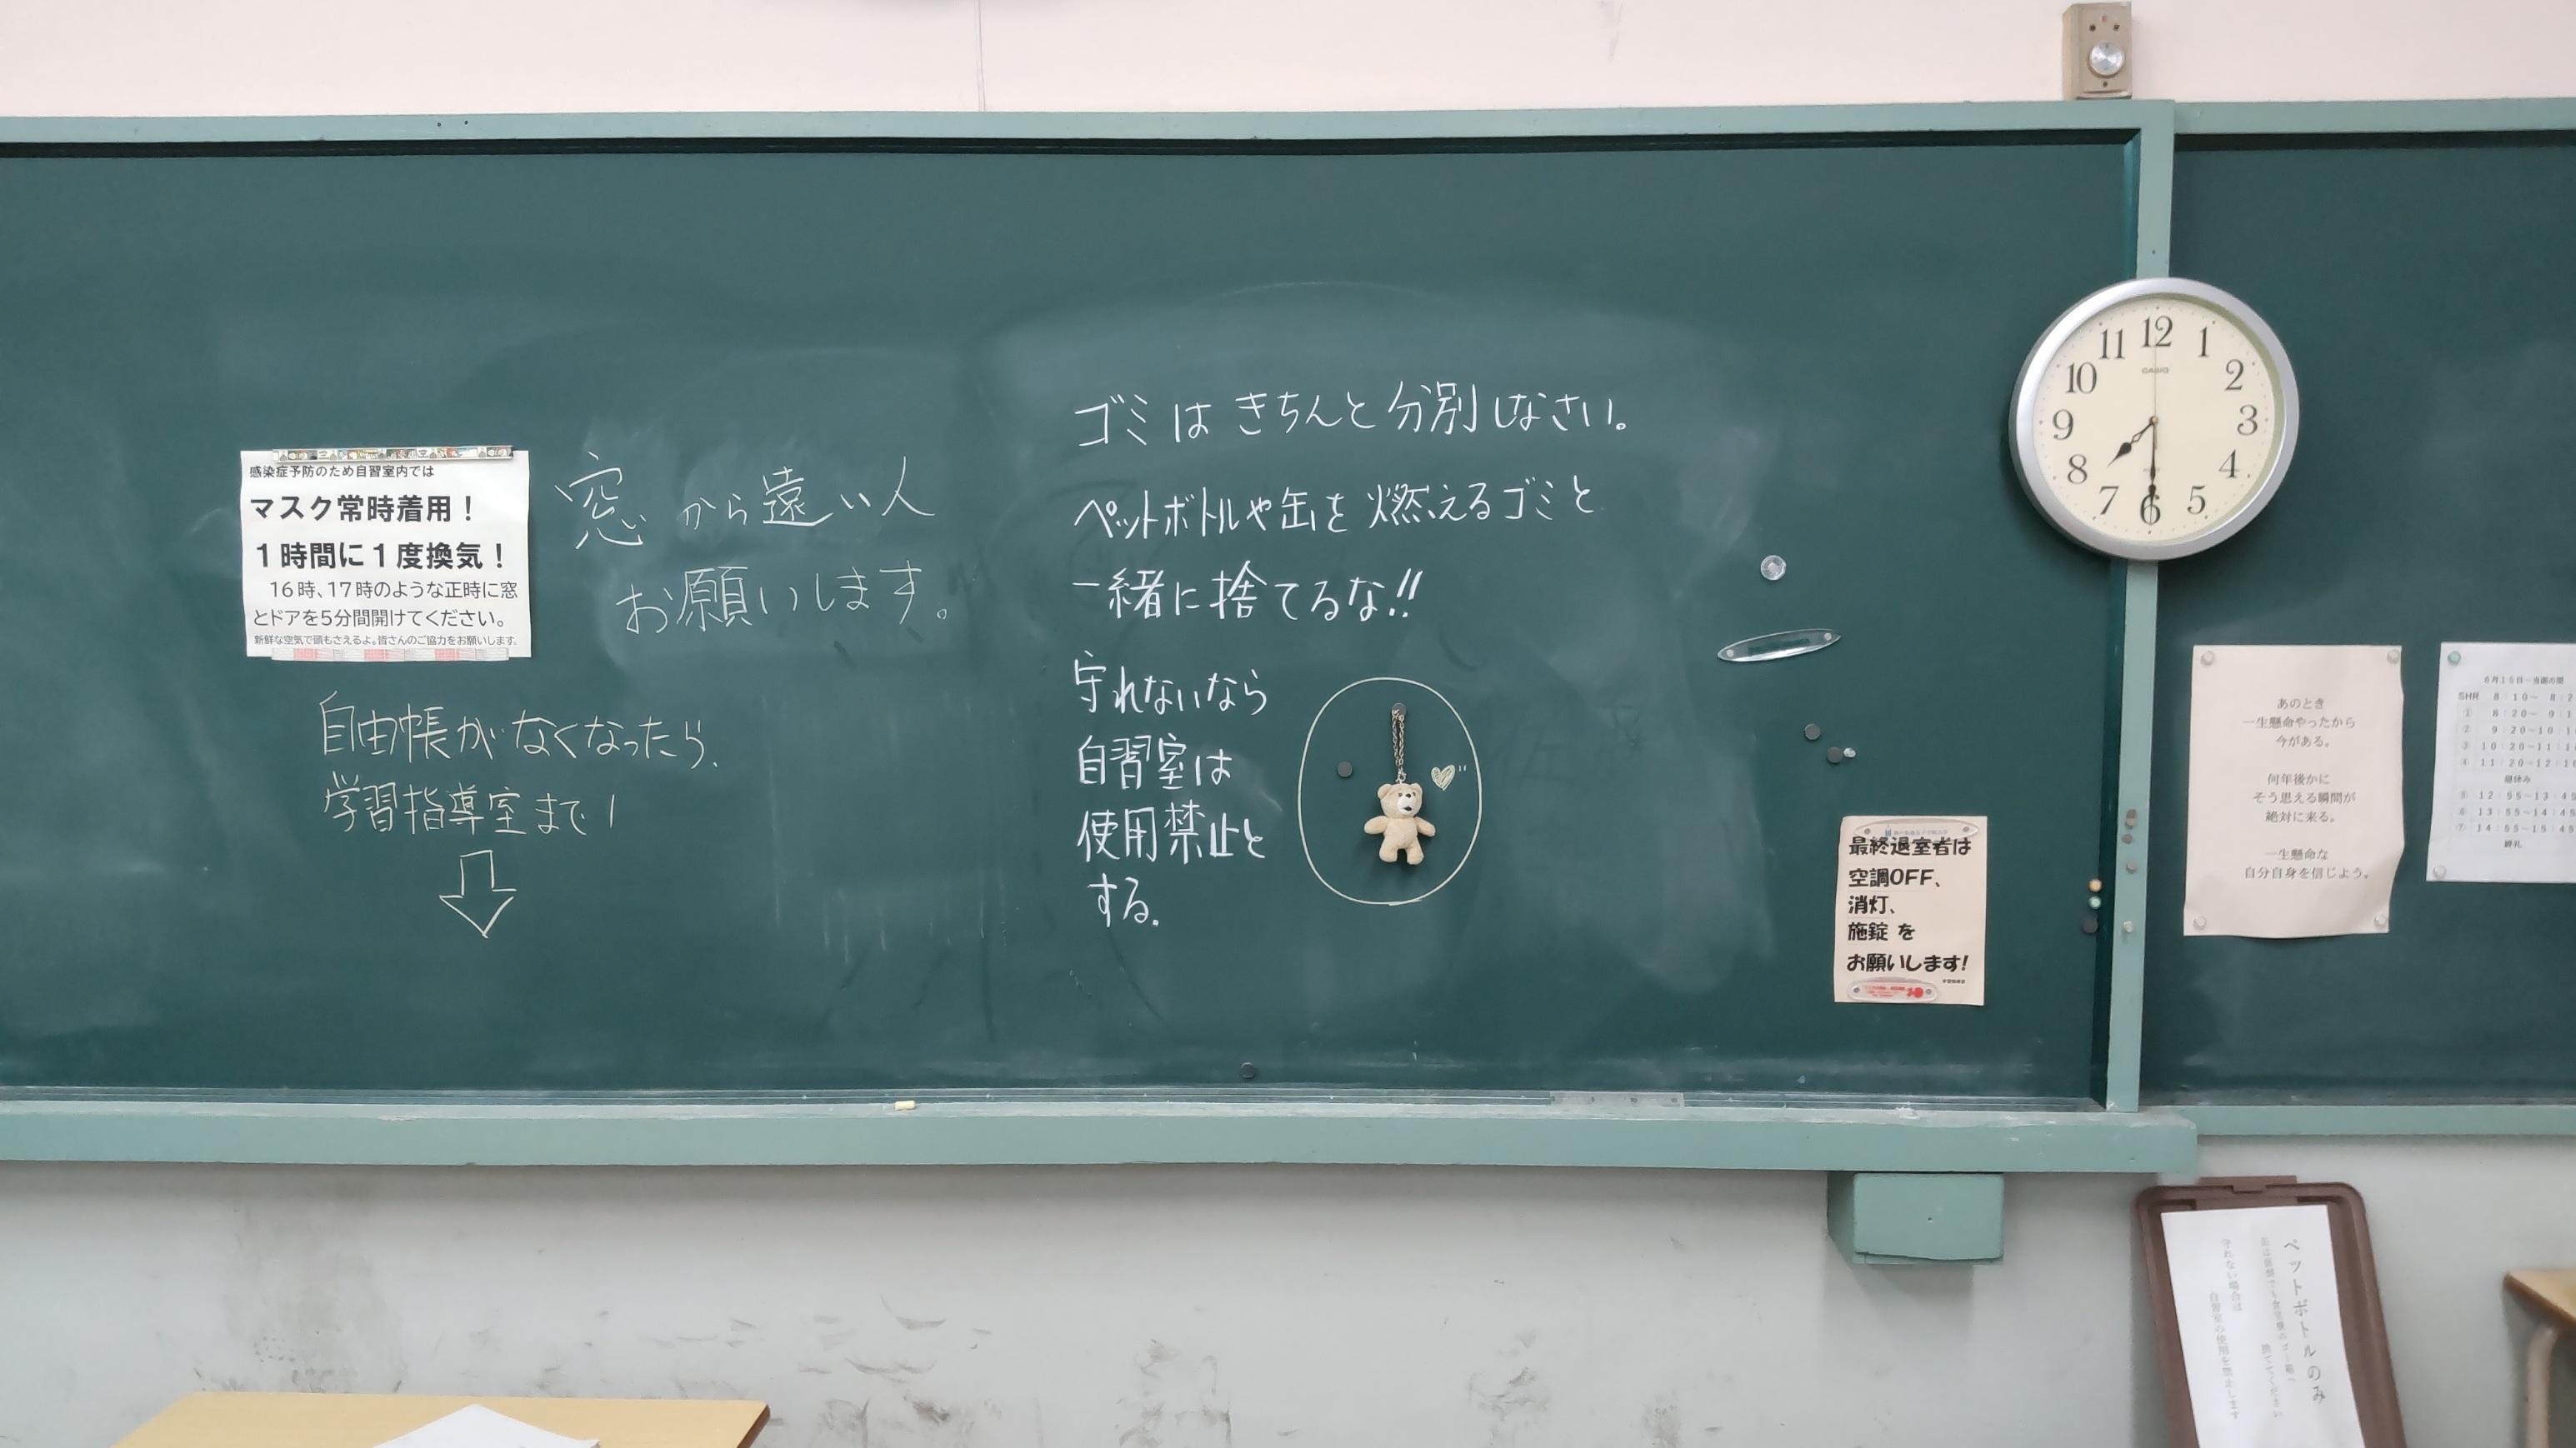 感染症予防のため自習室内では
マスク常時着用！
１時間に１度換気！
16時、17時のような正時に窓
とドアを5分間開けてください。
新鮮な空気で頭もさえるよ。皆さんのご協力をお願いします。
窓から遠い人
お願いします。
自由帳がなくなったら、
学習指導室まで！
ゴミはきちんと分別しなさい。
ペットボトルや缶を燃えるゴミと
一緒に捨てるな!!
守れないなら
自習室は
使用禁止と
する.
最終退室者は
空調OFF、
消灯、
施錠 を
お願いします!
CASIO
12
1
2
3
4
5
6
7
8
9
10
11
あのとき
一生懸命やったから
今がある。
何年後かに
そう思える瞬間が
絶対に来る。
一生懸命な
自分自身を信じよう。
SHR 8:10～ 8:2
① 8:20～ 9:1
② 9:20～10:1
③ 10:20～11:1
④ 11:20～12:1
昼休み
12:55～13:45
⑥ 13:55～14:45
⑦ 14:55～15:45
終礼
ペットボトルのみ
守れない場合は
自習室の使用を禁止します